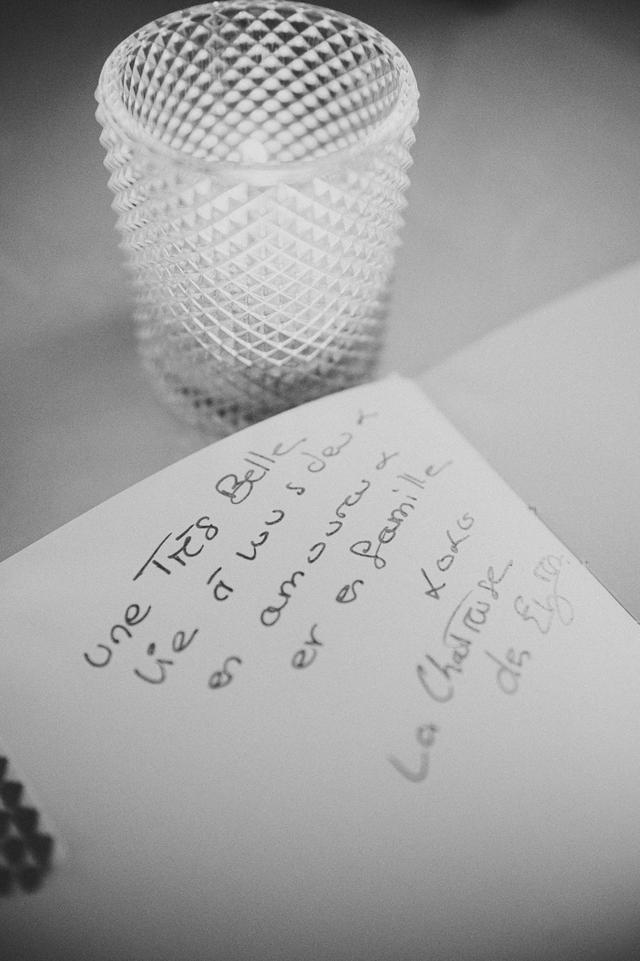 une Très Belle
vie à vous deux
en amoureux
et en famille
xoxo
La Chanteuse
de